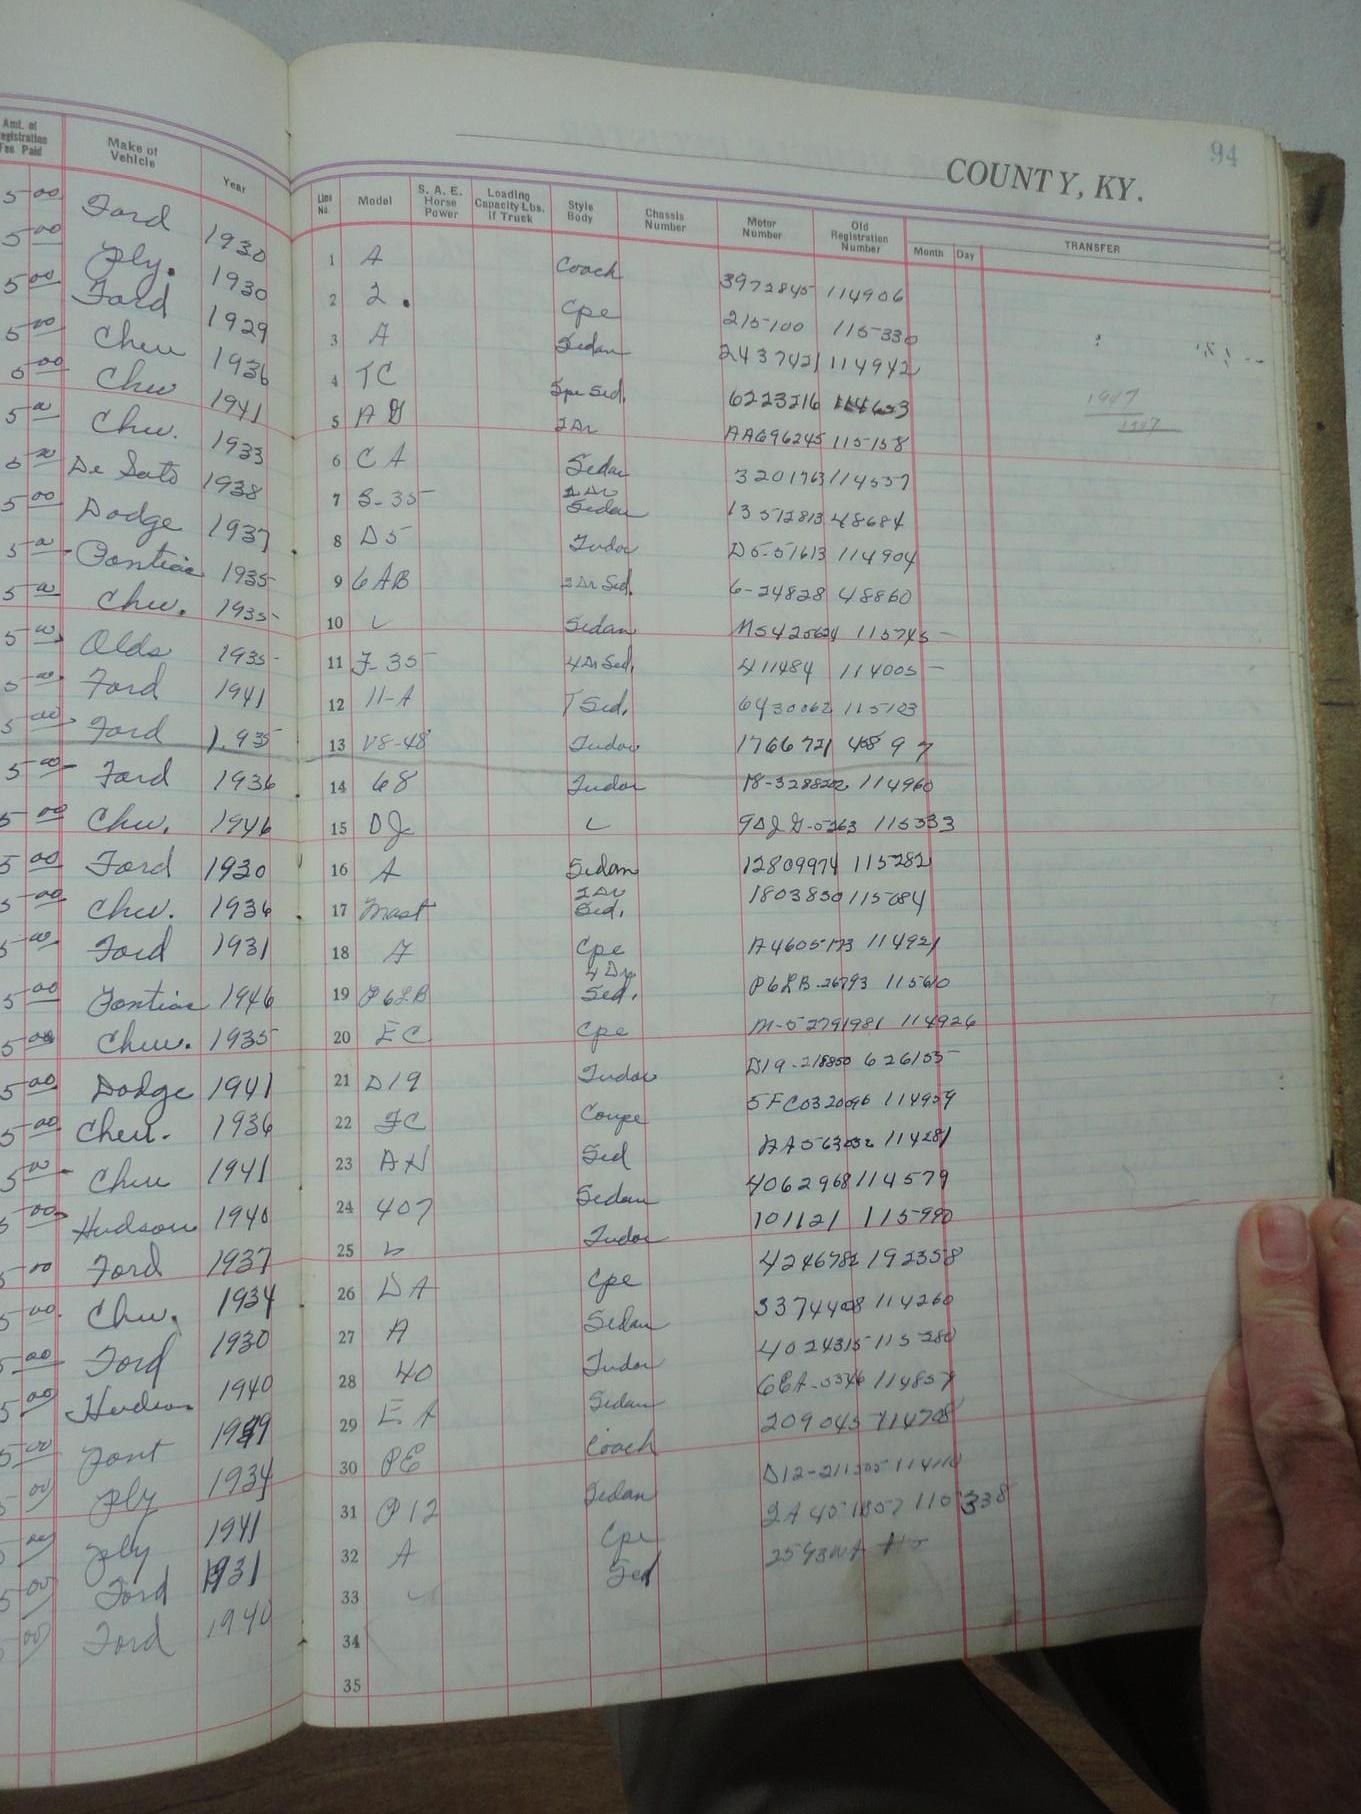 94
COUNTY, KY.
Amt. of Registration Fee Paid | Make of Vehicle | Year | Line No. | Model | S. A. E. Horse Power | Loading Capacity Lbs. if Truck | Style Body | Chassis Number | Motor Number | Old Registration Number | Month | Day | TRANSFER
5 00 Ford 1930 1 A Coach 3972845 114906
5 00 Ply. 1930 2 2. Cpe 215100 115330
5 00 Ford 1929 3 A Sedan 2437421 114942
5 00 Chev 1936 4 TC Spe Sed. 6223216
1947
1947
5 00 Chev 1941 5 A G 2 Dr AA696245 115158
5 00 Chev. 1933 6 C A Sedan 3201763 114557
5 00 De Soto 1938 7 S-35 2 Dr Sedan 13512813 48684
5 00 Dodge 1937 8 D5 Tudor D5-51613 114904
5 00 Pontiac 1935 9 6AB 2 Dr Sed. 6-24828 48860
5 00 Chev. 1935 10 Sedan 115745
5 00 Olds 1935 11 F-35 4 Dr Sed. 411484 114005
5 00 Ford 1941 12 11-A T Sed. 6430062 115123
5 00 Ford 1935 13 V8-48 Tudor 1766721
5 00 Ford 1936 14 68 Tudor 114960
5 00 Chev. 1946 15 DJ 115333
5 00 Ford 1930 16 A Sedan 12809974 115282
5 00 Chev. 1936 17 Mast 2 Dr Sed. 1803850 115084
5 00 Ford 1931 18 A Cpe A4605173 114921
5 00 Pontiac 1946 19 P6LB 4 Dr Sed. P6LB-26793 115610
5 00 Chev. 1935 20 EC Cpe M-52791981 114926
5 00 Dodge 1941 21 D19 Tudor D19-218850 626155
5 00 Chev. 1936 22 FC Coupe 114959
5 00 Chev 1941 23 AH Sed 114281
5 00 Hudson 1940 24 407 Sedan 4062968 114579
5 00 Ford 1937 25 Tudor 101121 115990
5 00 Chev. 1934 26 DA Cpe 4246782 192358
5 00 Ford 1930 27 A Sedan 3374408 114260
5 00 Hudson 1940 28 40 Tudor 4024315 115280
5 00 Pont 29 EA Sedan 114857
5 00 Ply 1934 30 PE Coach 209045 114708
5 00 Ply 1941 31 P12 Sedan
5 00 Ford 1931 32 A Cpe
5 00 Ford 1940 33 Sed
34
35